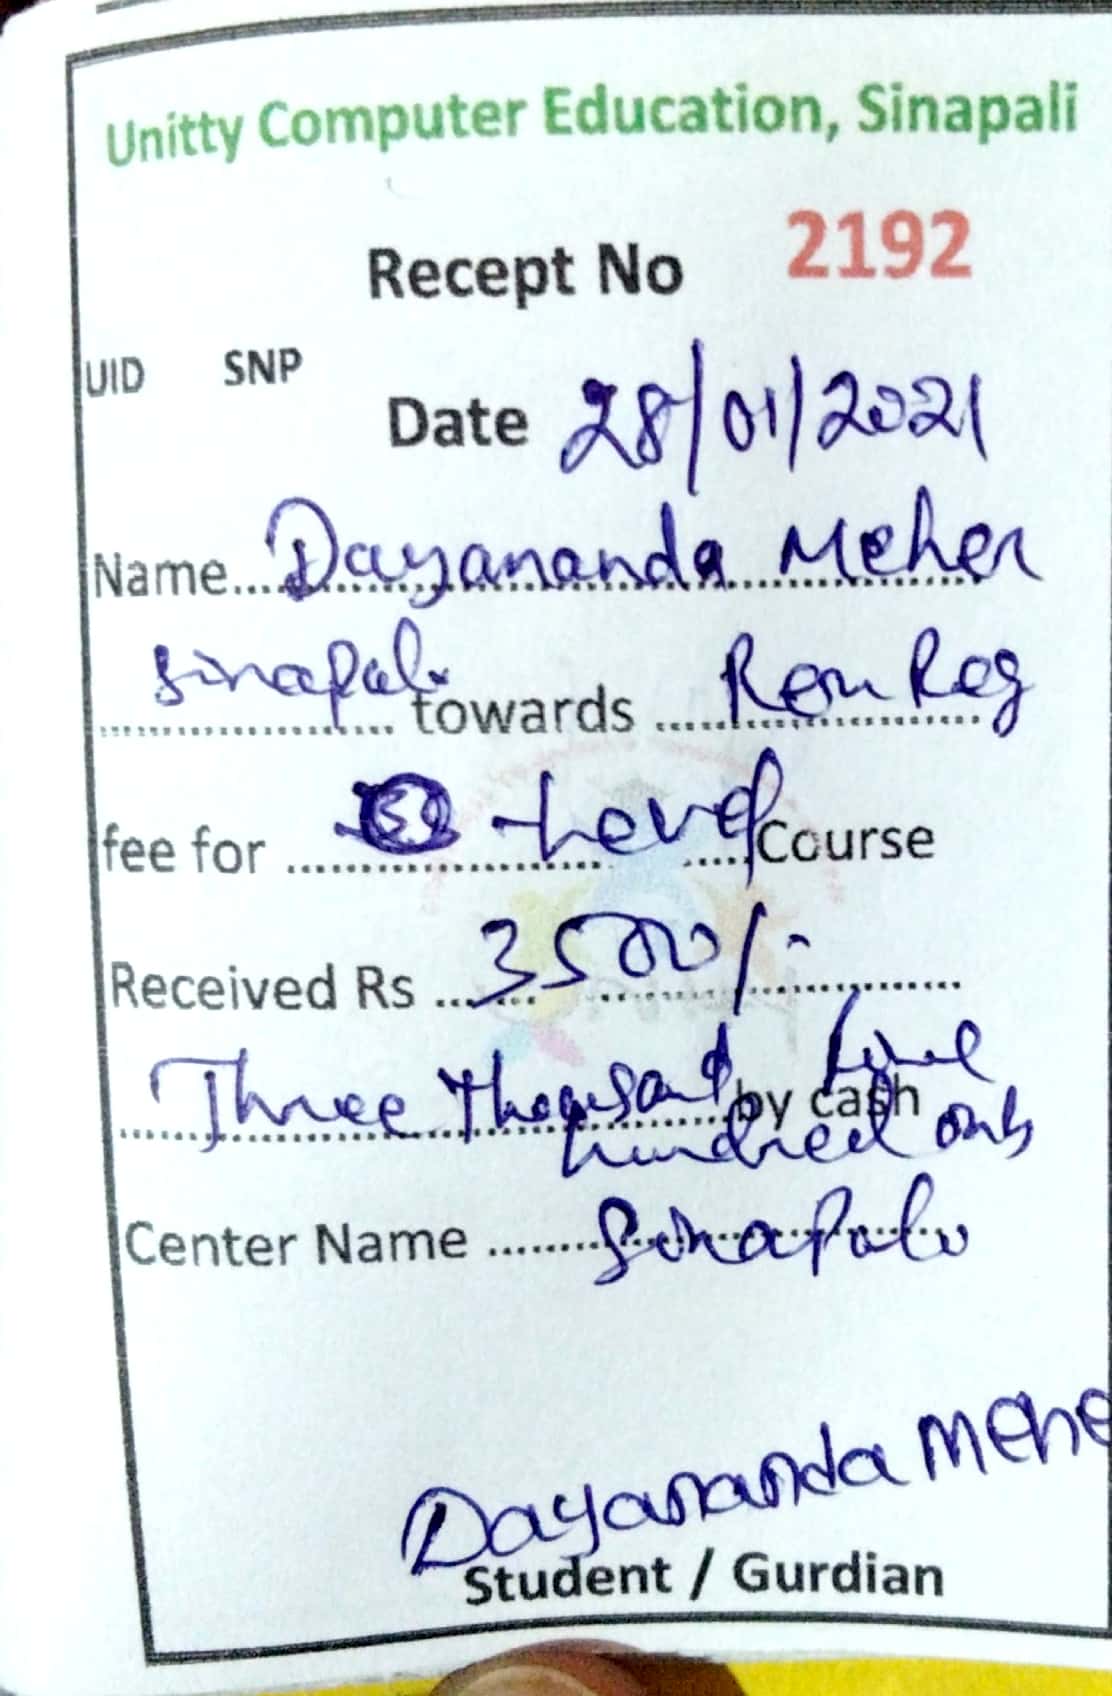 Unitty Computer Education, Sinapali
Recept No 2192
UID SNP
Date 28/01/2021
Name....Dayananda Meher
Sinapali towards Reg
fee for O-Level Course
Received Rs 3500/-
Three Thousand five by cash
hundred only
Center Name Sinapali
Dayananda Mehe
Student / Gurdian